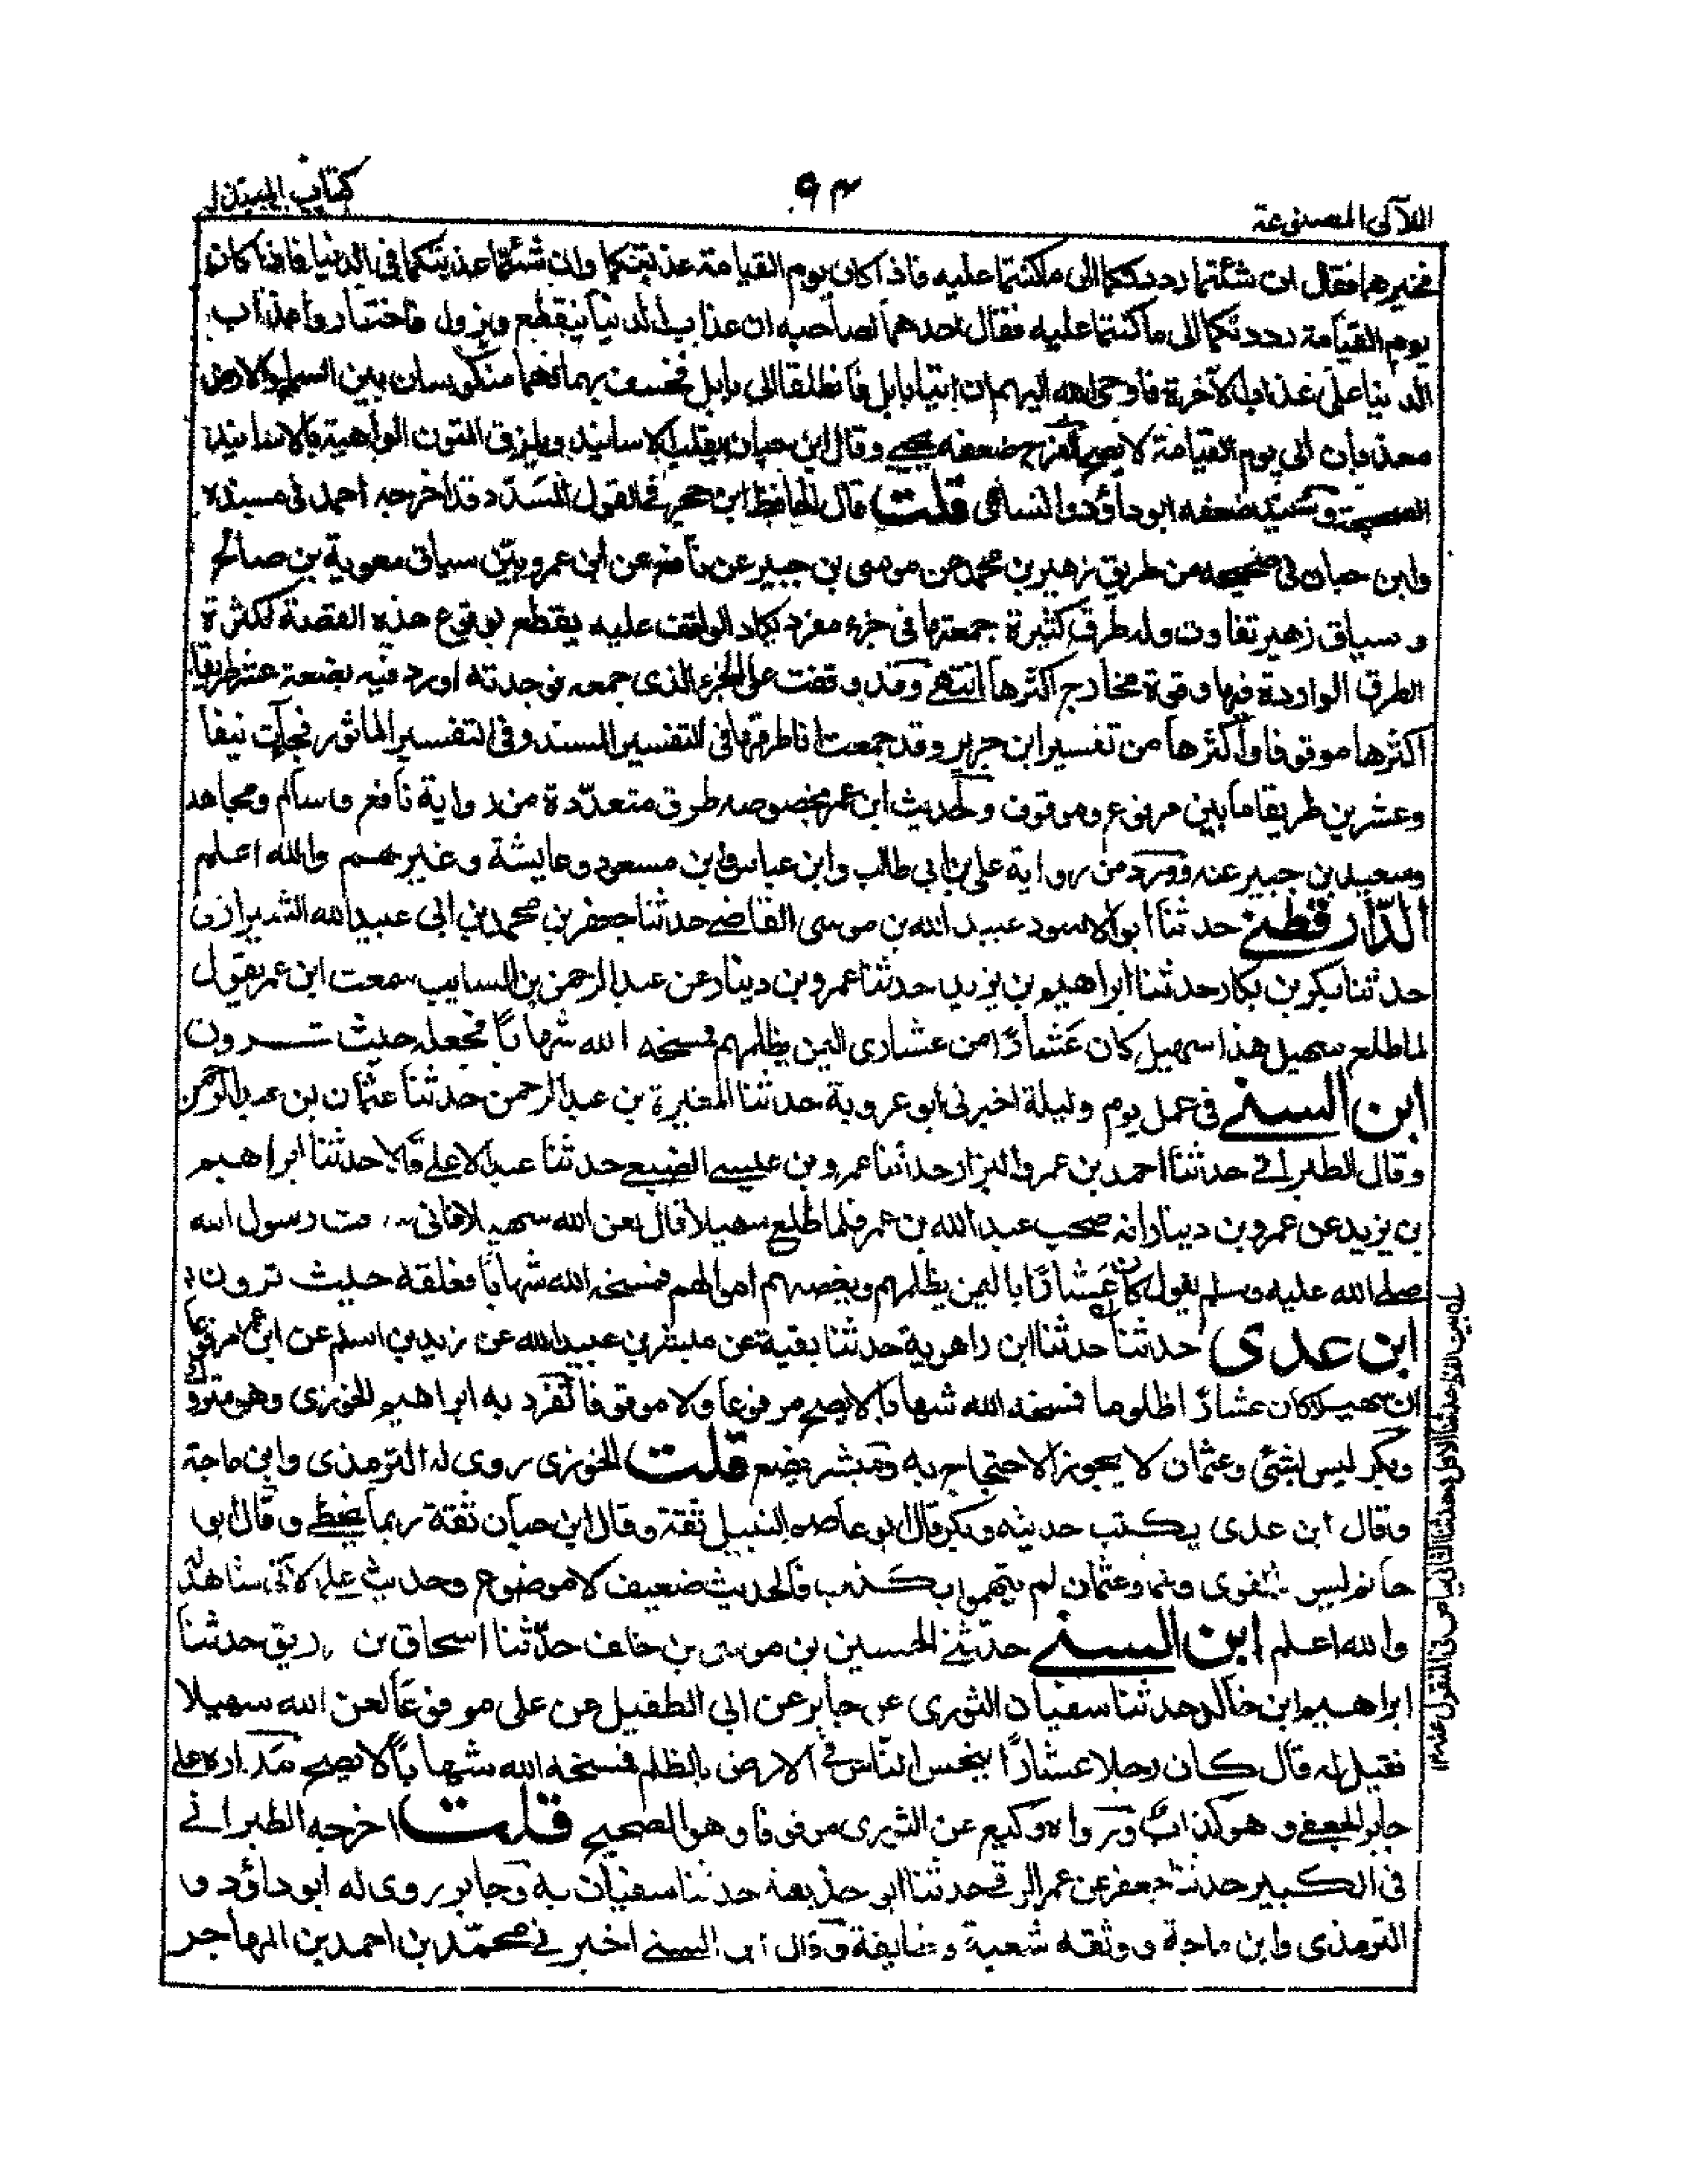 اللآلى المصنوعة
٩٣
كتاب المبتدا
فخيرهما فقال ان شئتما رددتكما الى ما كنتما عليه فاذا كان يوم القيامة عذبتكما وان شئتما عذبتكما فى الدنيا فاذا كان
يوم القيامة رددتكما الى ما كنتما عليه فقال احدهما لصاحبه ان عذاب الدنيا ينقطع ويزول فاختاروا عذاب
الدنيا على عذاب الآخرة فاوحى الله اليهم ان ائتيا بابل فانطلقا الى بابل فخسف بهما فهما منكوسان بين السماء والارض
معذبان الى يوم القيامة لا يصح الفرج ضعفه يحيى وقال ابن حبان يقلب الاسانيد ويلزق المتون الواهية بالاسانيد
الصحيحة وسنيد ضعفه ابو داؤد والنسائى قلت قال الحافظ ابن حجر فى القول المسدد قد اخرجه احمد فى مسنده
وابن حبان فى صحيحه من طريق زهير بن محمد عن موسى بن جبير عن نافع عن ابن عمر وبين سياق معوية بن صالح
وسياق زهير تفاوت وله طرق كثيرة جمعتها فى جزء مفرد يكاد الواقف عليه يقطع بوقوع هذه القصة لكثرة
الطرق الواردة فيها وقوة مخارج اكثرها انتهى وقد وقفت على الجزء الذى جمعه فوجدته اورد فيه بضعة عشر طريقا
اكثرها موقوفا واكثرها من تفسير ابن جرير وقد جمعت انا طرقها فى التفسير المسند وفى التفسير الماثور فجاءت نيفا
وعشرين طريقا ما بين مرفوع وموقوف ولحديث ابن عمر بخصوصه طرق متعددة من رواية نافع وسالم ومجاهد
وسعيد بن جبير عنه وورد من رواية على بن ابي طالب وابن عباس وابن مسعود وعايشة وغيرهم والله اعلم
الدّار قطنى حدثنا ابو الاسود عبيد الله بن موسى القاضى حدثنا جعفر بن محمد بن ابى عبيد الله الشيرازى
حدثنا بكر بن بكار حدثنا ابراهيم بن يزيد حدثنا عمرو بن دينار عن عبد الرحمن بن السايب سمعت ابن عمر يقول
لما طلع سهيل هذا سهيل كان عَشّارًا من عشارى اليمن يظلمهم فمسخه الله شهابًا فجعله حيث ترون
ابن السنى فى عمل يوم وليلة اخبرنى ابو عروبة حدثنا المغيرة بن عبد الرحمن حدثنا عثمان بن عبد الرحمن
وقال الطبرانى حدثنا احمد بن عمرو البزار حدثنا عمرو بن عيسى الضبعى حدثنا عبد الاعلى قالا حدثنا ابراهيم
بن يزيد عن عمرو بن دينار انه صحب عبد الله بن عمر فلما طلع سهيلا قال لعن الله سهيلا فانى سمعت رسول الله
صلى الله عليه وسلم يقول كان عَشارًا باليمن يظلمهم ويغصبهم اموالهم فمسخه الله شهابًا فعلقه حيث ترون
ابن عدى حدثنا حدثنا ابن راهوية حدثنا بقية عن مبشر بن عبيد الله عن زيد بن اسلم عن ابن عمر مرفوعا
ان سهيلا كان عشارًا ظلوما فمسخه الله شهابا لا يصح مرفوعا ولا موقوفا تفرد به ابراهيم الخوزى وهو متروك
وبكر ليس بشئى وعثمان لا يجوز الاحتجاج به ومبشر يضع قلت الخوزى روى له الترمذى وابن ماجة
وقال ابن عدى يكتب حديثه وبكر قال ابو عاصم النبيل ثقة وقال ابن حبان ثقة ربما يخطى وقال ابو
حاتم ليس بالقوى وعثمان لم يتهموا بكذب فالحديث ضعيف لا موضوع وحديث على الآتى شاهد له
والله اعلم ابن السنى حدثنى الحسين بن موسى بن خلف حدّثنا اسحاق بن زريق حدثنا
ابراهيم ابن خالد حدثنا سفيان الثورى عن جابر عن ابى الطفيل عن على مرفوعًا لعن الله سهيلا
فقيل له قال كان رجلا عشارًا يبخس الناس فى الارض بالظلم فمسخه الله شهابًا لا يصح مداره على
جابر الجعفى وهو كذاب ورواه وكيع عن الثورى موقوفا وهو الصحيح قلت اخرجه الطبرانى
فى الكبير حدثنا جعفر عن عمر الرقى حدثنا ابو حذيفة حدثنا سفيان به وجابر روى له ابو داؤد و
الترمذى وابن ماجة ووثقه شعبة وطايفة وقال ابن السنى اخبرنى محمّد بن احمد بن المهاجر